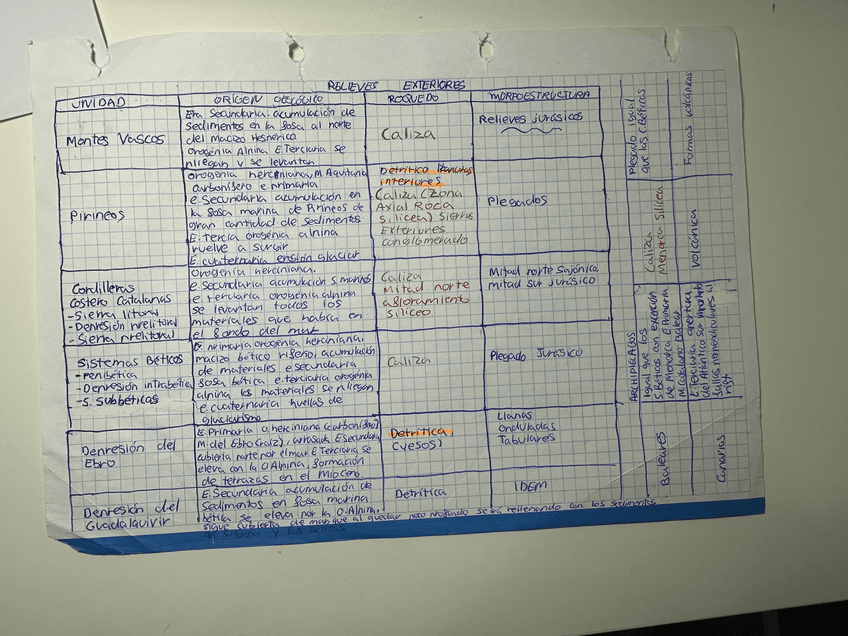 RELIEVES EXTERIORES
UNIDAD ORIGEN GEOLÓGICO ROQUEDO MORFOESTRUCTURA
Montes Vascos
Era Secundaria: acumulación de
sedimentos en la fosa al norte
del macizo Hespérico
Orogénia Alpina E.Terciaria se
pliegan y se levantan
Caliza
Relieves jurásicos
Pirineos
orogenia herciniana, M. Aquitania
carbonífero e primaria
e. Secundaria acumulación en
la fosa marina de Pirineos de
gran cantidad de sedimentos
E. tercia orogénia alpina
vuelve a surgir
E. cuaternaria erosión glaciar
Detrítico llanuras
interiores
Caliza (Zona
Axial Roca
silicea) Sierras
Exteriores
conglomerado
Plegados
Cordilleras
Costero Catalanas
- Sierra litoral
- Depresión prelitoral
- Sierra prelitoral
Orogenia herciniana.
e. Secundaria acumulación s. marinos
e terciaria orogénia alpina
se levantan todos los
materiales que había en
el fondo del mar
Caliza
Mitad norte
afloramiento
silíceo
Mitad norte sajónico
mitad sur jurásico
Sistemas Béticos
- Penibética
- Depresión intrabética
- S. Subbéticas
E. primaria orogénia herciniana:
macizo bético rifeño: acumulación
de materiales e secundaria
fosa bética e terciaria orogénia
alpina los materiales se pliegan
e cuaternaria huellas de
glaciarismo
Caliza
Plegado Jurásico
Depresión del
Ebro
E. Primaria O. herciniana (carbonífero)
M. del Ebro E. Secundaria
cubierta por el mar E. Terciaria se
eleva con la O. Alpina, formación
de terrazas en el Mioceno.
Detrítica,
(yesos)
Llanas
Onduladas
Tabulares
Depresión del
Guadalquivir
E. Secundaria acumulación de
sedimentos en fosa marina
bética se eleva por la O. Alpina.
sigue cubierta de mar que al quedar poco profundo se irá rellenando con los sedimentos
Detrítica
IDEM
ARCHIPIELAGOS
Baleares
Igual que los
S. Béticos con excepción
de Menorca E. Primaria
M. Catalano Balear
Caliza
Menorca Silícea
Plegado igual
que los béticas
Canarias
E. Terciaria apertura
del Atlántico
fallas perpendiculares
Volcánica
Formas volcánicas